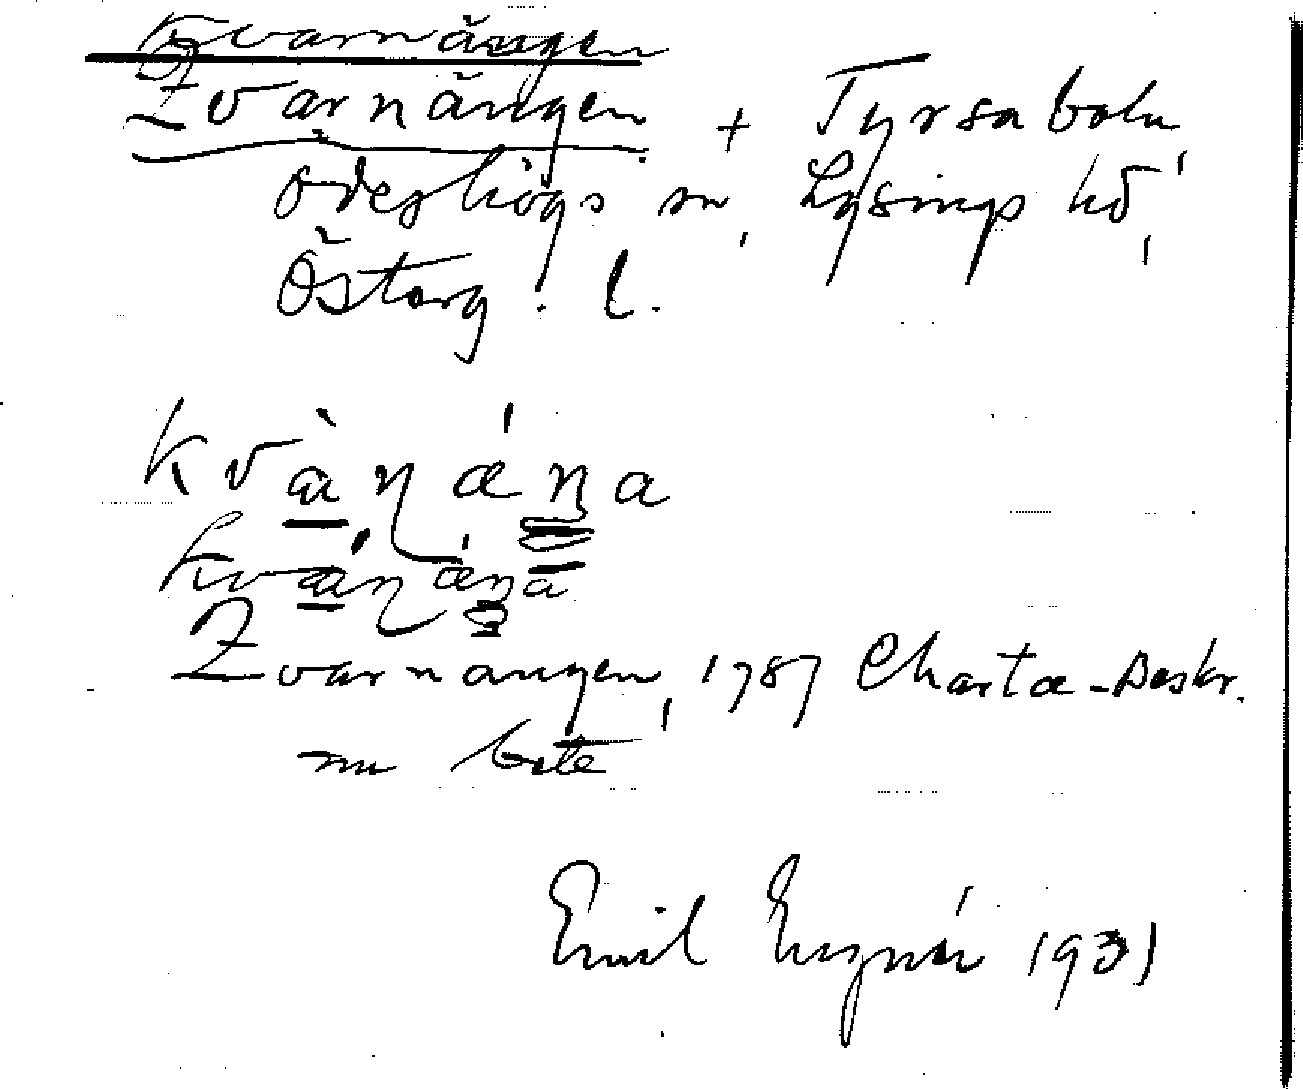 Kvarnängen
Qvarnängen + Tyrsabolu,
Ödeshögs sn, Lysings hd,
Östorg. l.
kvàɳǽŋa
kvàɳǽŋa
Qvarnängen, 1787 Charta-Beskr.
nu bete
Emil 1931